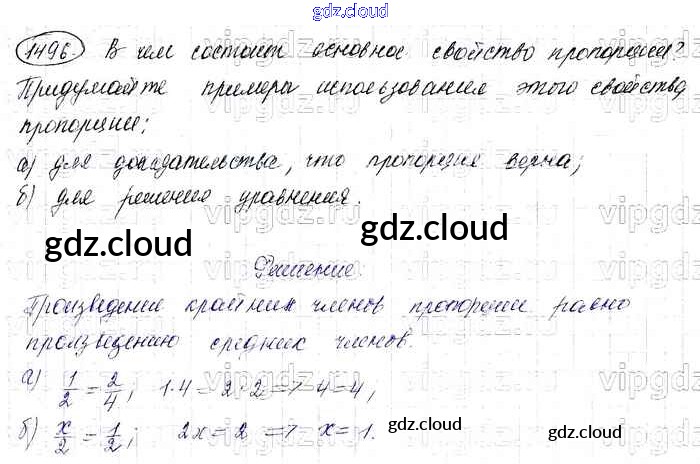 gdz.cloud
1496. В чем состоит основное свойство пропорции?
Придумайте примеры использования этого свойства
пропорции:
а) для доказательства, что пропорция верна;
б) для решения уравнения.
gdz.cloud gdz.cloud
Решение:
Произведение крайних членов пропорции равно
произведению средних членов.
а) 1/2 = 2/4; 1·4 = 2·2 => 4=4;
б) x/2 = 1/2; 2x = 2 => x = 1.
gdz.cloud gdz.cloud